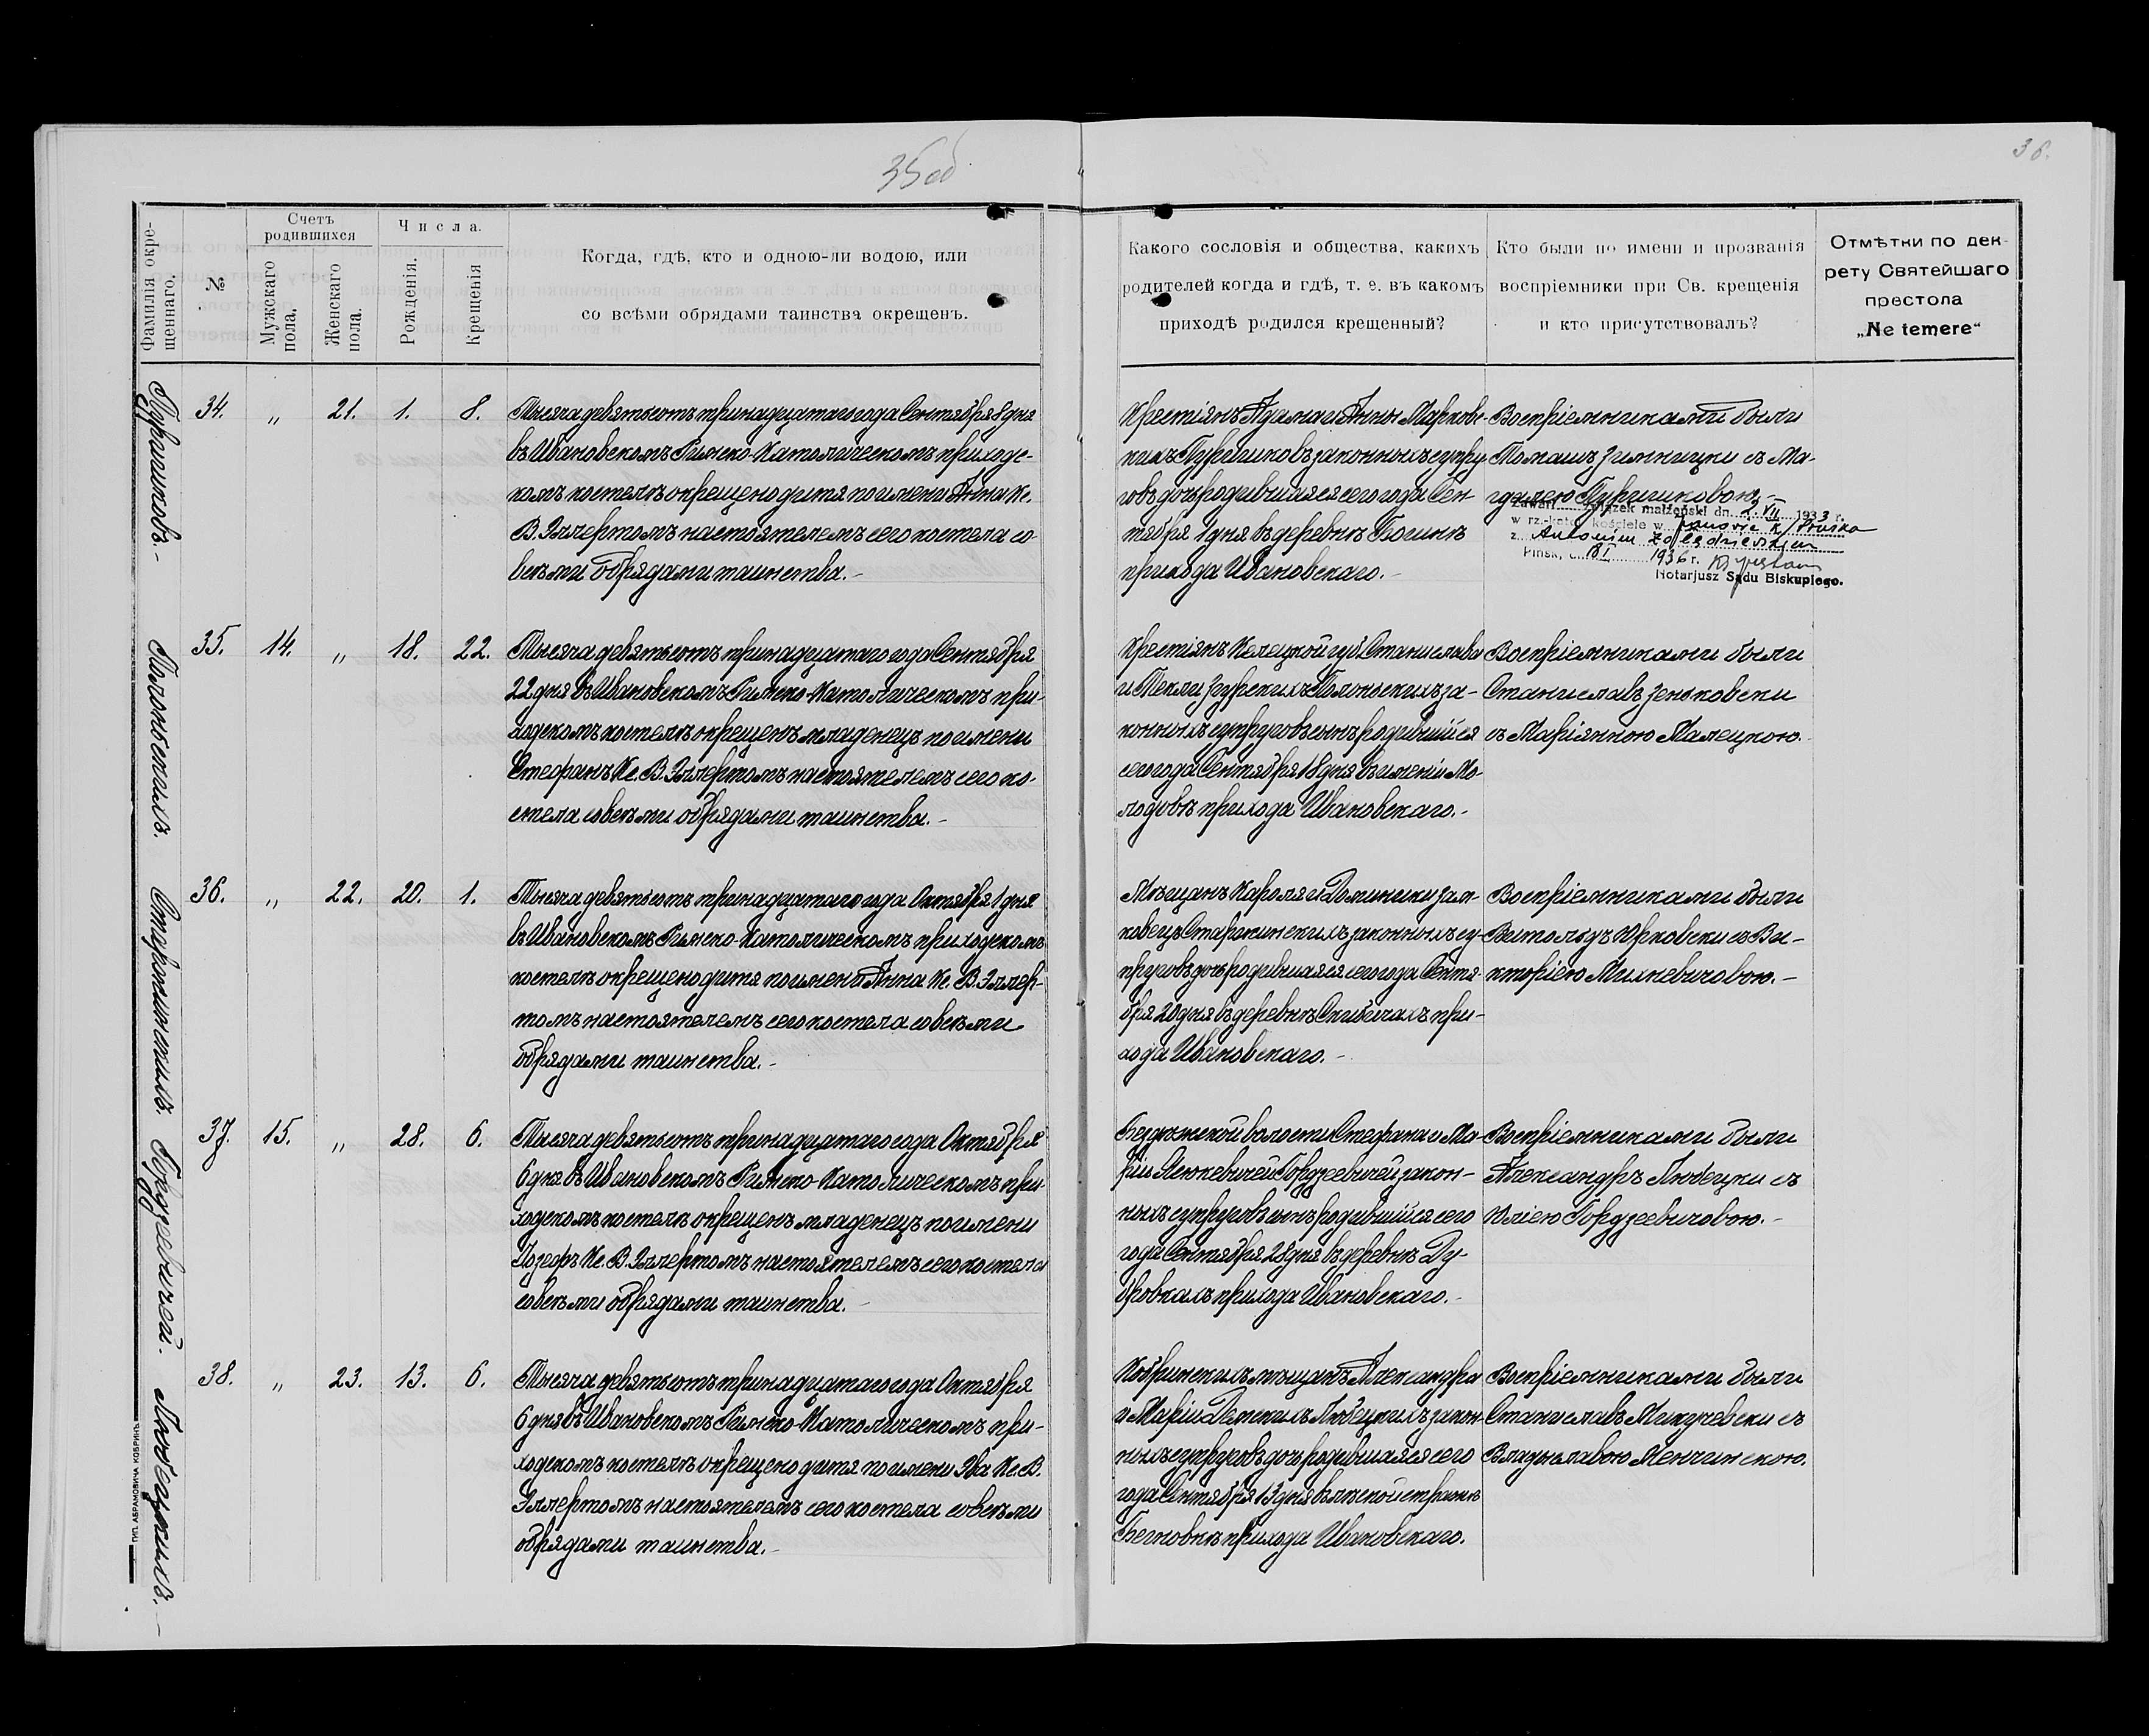 35 об
36.
Фамилія окре-
щеннаго.
№
Счетъ
родившихся
Мужскаго
пола.
Женскаго
пола.
Числа.
Рожденія.
Крещенія
Когда, гдѣ, кто и одною-ли водою, или
со всѣми обрядами таинства окрещенъ.
Какого сословія и общества, какихъ
родителей когда и гдѣ, т. е. въ какомъ
приходѣ родился крещенный?
Кто были по имени и прозванія
воспріемники при Св. крещенія
и кто присутствовалъ?
Отмѣтки по дек-
рету Святейшаго
престола
„Ne temere“
Пуришковъ.-
34. „ 21. 1. 8.
Тысяча девятьсотъ тринадцатаго года Сентября 8 дня
въ Ивановскомъ Римско-Католическомъ приход-
скомъ костелѣ окрещено дитя по имени Анна Кс.
В. Эллертомъ настоятелемъ сего костела со
всѣми обрядами таинства.-
Крестіянъ Адама и Анны Марковс-
кихъ Пуришковъ законныхъ супру-
говъ дочь родившаяся сего года Сен-
тября 1 дня въ деревнѣ
прихода Ивановскаго.-
Воспріемниками были
Томашъ Зимницки съ Ма-
гдалею Пуришковою.-
Zawarł związek małżeński dn. 2 VII 1933 r.
w rz.-kat. kościele w Janowie k/Pińska
z Antonim
Pińsk, d. 18 I 1936 r.
Notarjusz Sądu Biskupiego.
Полоньскихъ.
35. 14. „ 18. 22.
Тысяча девятьсотъ тринадцатаго года Сентября
22 дня въ Ивановскомъ Римско-Католическомъ при-
ходскомъ костелѣ окрещенъ младенецъ по имени
Стефанъ Кс. В. Эллертомъ настоятелемъ сего ко-
стела со всѣми обрядами таинства.-
Крестіянъ Келецкой губ. Станислава
и Теклы Полоньскихъ за-
конныхъ супруговъ сынъ родившійся
сего года Сентября 18 дня въ имѣніи Мо-
лодовѣ прихода Ивановскаго.-
Воспріемниками были
Станиславъ Зеньковски
съ Маріянною Малецкою.
Старжинскихъ.
36. „ 22. 20. 1.
Тысяча девятьсотъ тринадцатаго года Октября 1 дня
въ Ивановскомъ Римско-Католическомъ приходскомъ
костелѣ окрещено дитя по имени Анна Кс. В. Эллер-
томъ настоятелемъ сего костела со всѣми
обрядами таинства.-
Мѣщанъ Кароля и Доминики Зам-
ковецъ Старжинскихъ законныхъ су-
пруговъ дочь родившаяся сего года Сентя-
бря 20 дня въ деревнѣ Скибичахъ при-
хода Ивановскаго.-
Воспріемниками были
Витольдъ Юрковски съ Ви-
кторіею Михневичовою.-
Гордзевичей.
37. 15. „ 28. 6.
Тысяча девятьсотъ тринадцатаго года Октября
6 дня въ Ивановскомъ Римско-Католическомъ при-
ходскомъ костелѣ окрещенъ младенецъ по имени
Іозефъ Кс. В. Эллертомъ настоятелемъ сего костела
со всѣми обрядами таинства.-
Бездѣжской волости Стефана и Ма-
ріи Гордзеевичей закон-
ныхъ супруговъ сынъ родившійся сего
года Сентября 28 дня въ деревнѣ Ду-
бровкахъ прихода Ивановскаго.-
Воспріемниками были
Александръ Любецки съ
Юліею Гордзеевичовою.-
Любецкихъ.-
38. „ 23. 13. 6.
Тысяча девятьсотъ тринадцатаго года Октября
6 дня въ Ивановскомъ Римско-Католическомъ при-
ходскомъ костелѣ окрещено дитя по имени Эва Кс. В.
Эллертомъ настоятелемъ сего костела со всѣми
обрядами таинства.-
Кобринскихъ мѣщанъ Александра
и Маріи Любецкихъ закон-
ныхъ супруговъ дочь родившаяся сего
года Сентября 13 дня въ лѣсной стражѣ
прихода Ивановскаго.
Воспріемниками были
Станиславъ Микучевски съ
Владыславою Менчинскою.
ТИП. АБРАМОВИЧА КОБРИНЪ